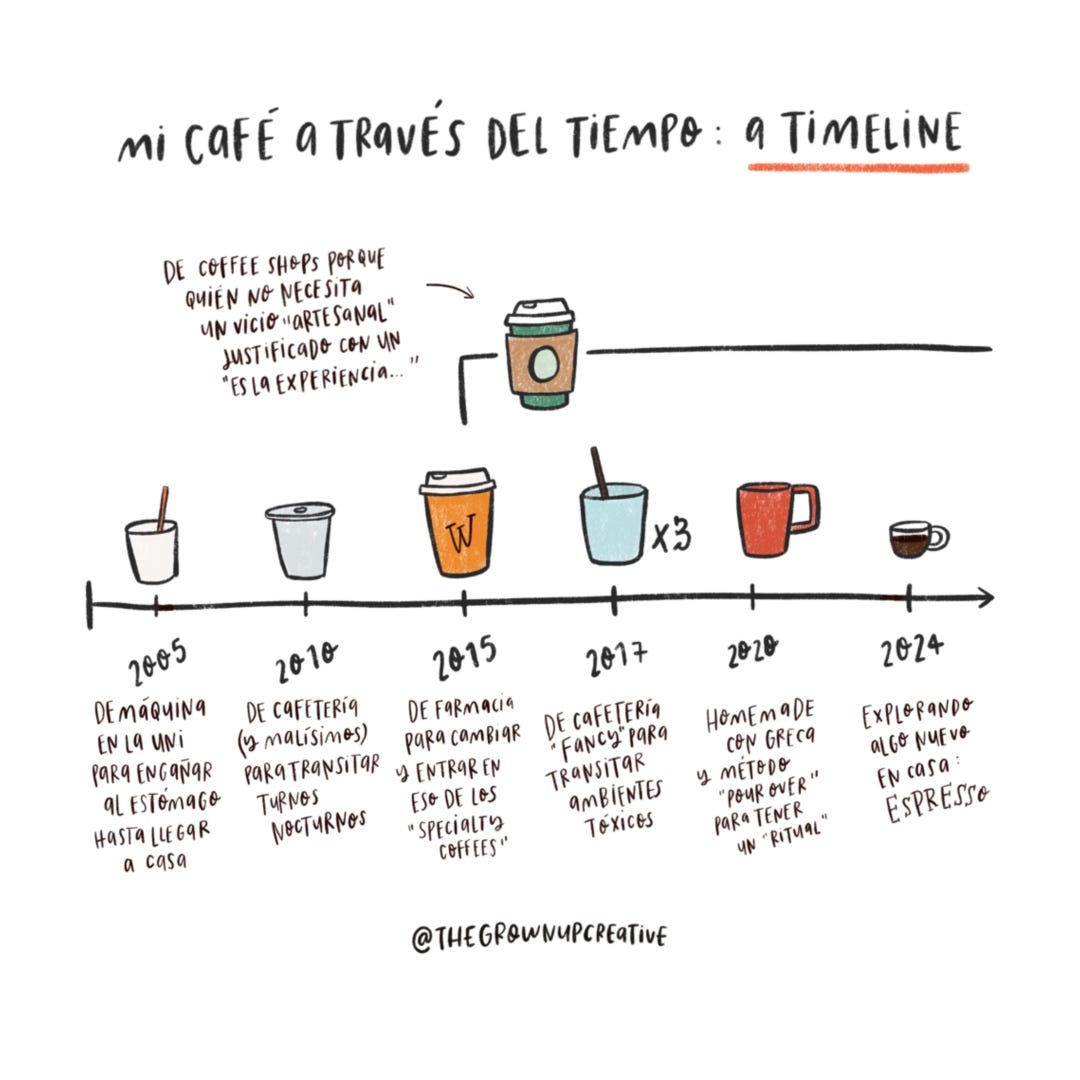 MI CAFÉ A TRAVÉS DEL TIEMPO: A TIMELINE
DE COFFEE SHOPS PORQUE
QUIÉN NO NECESITA
UN VICIO "ARTESANAL"
JUSTIFICADO CON UN
"ES LA EXPERIENCIA..."
W
X3
2005
DE MÁQUINA
EN LA UNI
PARA ENGAÑAR
AL ESTÓMAGO
HASTA LLEGAR
A CASA
2010
DE CAFETERÍA
(Y MALÍSIMOS)
PARA TRANSITAR
TURNOS
NOCTURNOS
2015
DE FARMACIA
PARA CAMBIAR
Y ENTRAR EN
ESO DE LOS
"SPECIALTY
COFFEES"
2017
DE CAFETERÍA
"FANCY" PARA
TRANSITAR
AMBIENTES
TÓXICOS
2020
HOMEMADE
CON GRECA
Y MÉTODO
"POUR OVER"
PARA TENER
UN "RITUAL"
2024
EXPLORANDO
ALGO NUEVO
EN CASA:
ESPRESSO
@THEGROWNUPCREATIVE